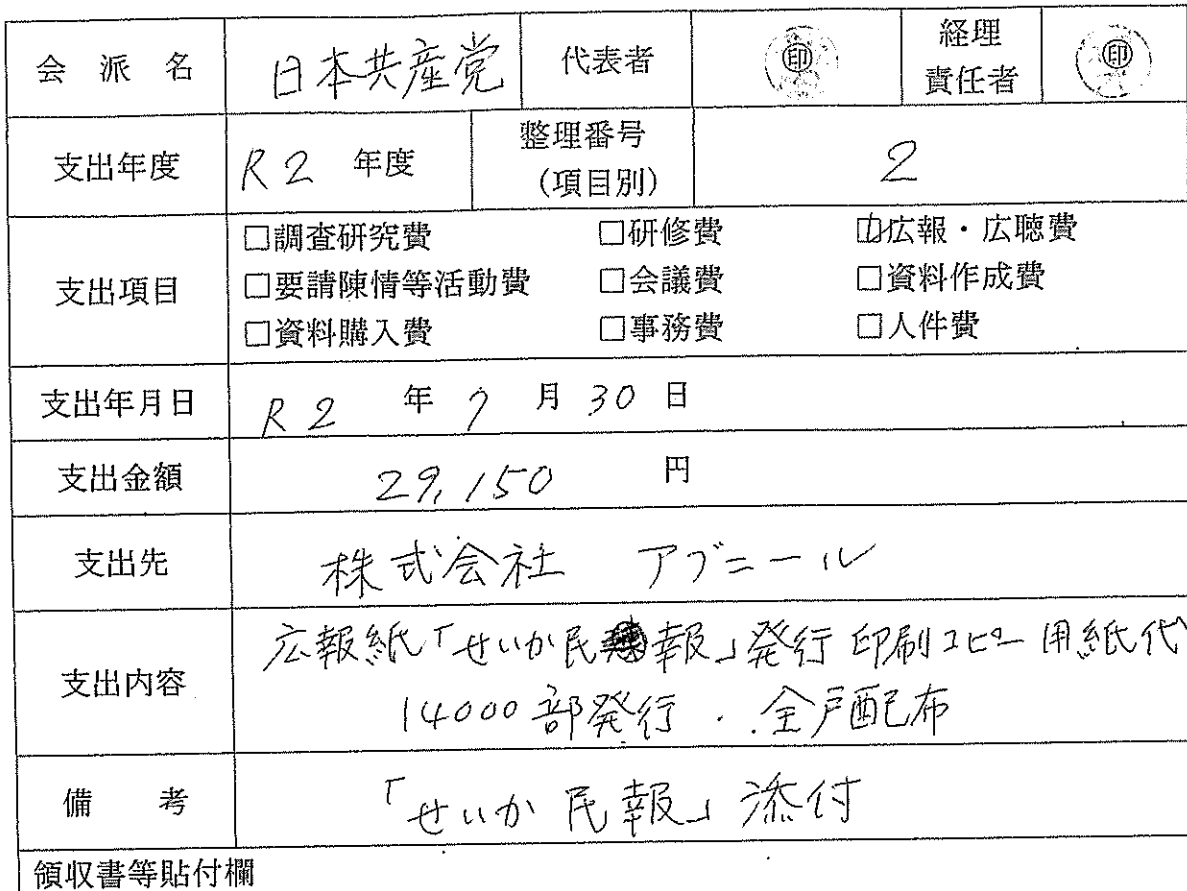 会派名 日本共産党 代表者 印 経理責任者 印
支出年度 R2年度 整理番号(項目別) 2
支出項目
□調査研究費 □研修費 ☑広報・広聴費
□要請陳情等活動費 □会議費 □資料作成費
□資料購入費 □事務費 □人件費
支出年月日 R2年7月30日
支出金額 29,150円
支出先 株式会社 アブニール
支出内容 広報紙「せいか民報」発行 印刷コピー用紙代
14000部発行・全戸配布
備考 「せいか民報」添付
領収書等貼付欄